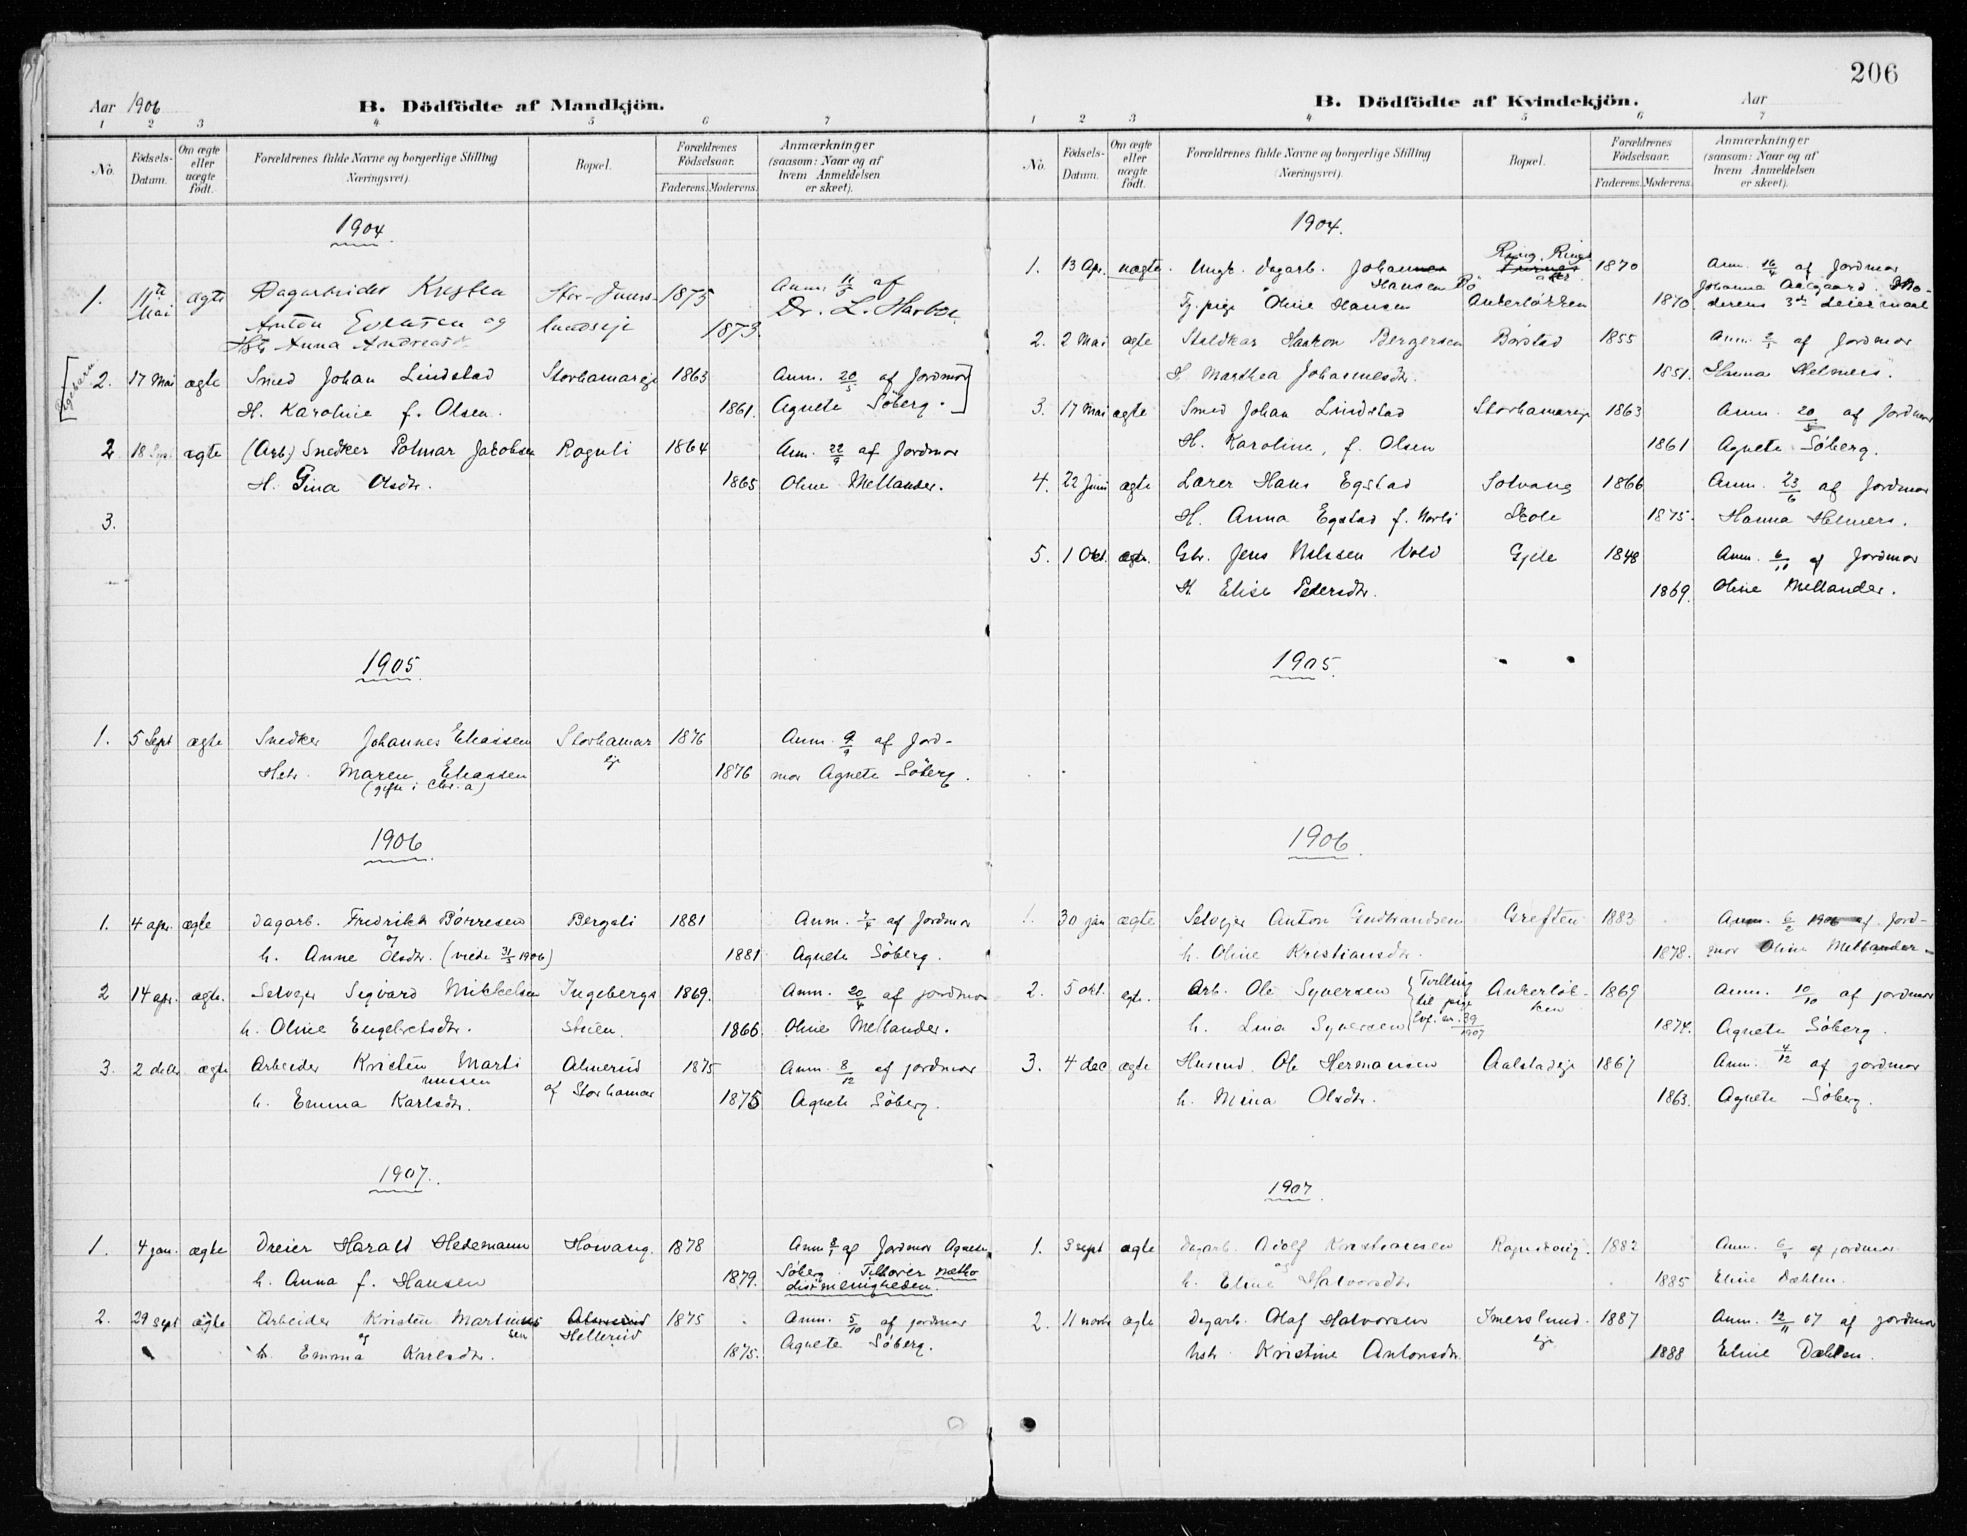 206
Aar 1906
B. Dödfödte af Mandkjön.
1 2 3 4 5 6 7
No.
Födsels-Datum.
Om ægte eller uægte födt.
Forældrenes fulde Navne og borgerlige Stilling (Næringsvei).
Bopæl.
Forældrenes Födselsaar.
Faderens. Moderens.
Anmærkninger (saasom: Naar og af hvem Anmeldelsen er skeet).
1904
1. 11te Mai ægte Dagarbeider Kristen 1875 Anm. 11/5 af
Anton Evensen og 1873. Dr. L.
Hstr Anna
2. 17 Mai ægte Smed Johan Lindstad Storhamareje 1863 Anm. 20/5 af Jordmor
H. Karoline f. Olsen. 1861. Agnete Söberg.
2 18 Sept ægte (Arb) Snedker Jakobsen Rognli 1864 Anm. 22/9 af Jordmor
H. Gina Olsdtr. 1865 Oline Mellander.
3.
1905
1. 5 Sept ægte Snedker Johannes Eliassen Storhamar 1876 Anm. 9/9 af Jord-
Hstr. Maren Eliassen eje 1876 mor Agnete Söberg.
(gifte i Chr.a)
1906
1. 4 apr. ægte Dagarb. Fredrik Börresen Bergsli 1881 Anm. 7/4 af Jordmor
og
h. Anne Olsdtr. (viede 31/3 1906) 1881 Agnete Söberg.
2 14 apr. ægte. Selvejer Sigvard Mikkelsen Ingebergs 1869. Anm. 20/4 af jordmor
h. Oline Engebretsdtr. 1866. Oline Mellander.
3. 2 ægte Arbeider Kristen Marti 1875 Anm. 8/12 af jordmor
nussen
h. Emma Karlsdtr. af Storhamar 1875 Agnete Söberg.
1907.
1. 4 jan. ægte Dreier Harald Hedemann Howang. 1878 Anm 8/1 af Jordmor Agnete
h. Anna f. Hansen 1879. Söberg Tilhører metho
distmenigheden.
2. 29 sept ægte Arbeider Kristen Martinus 1875 Anm. 5/10 af jordmor
sen Hellerud
og
h. Emma Karlsdtr. 1875. Agnete Söberg.
B. Dödfödte af Kvindekjön.
Aar
1 2 3 4 5 6 7
No.
Födsels-Datum.
Om ægte eller uægte födt.
Forældrenes fulde Navne og borgerlige Stilling (Næringsvei).
Bopæl.
Forældrenes Födselsaar.
Faderens. Moderens.
Anmærkninger (saasom: Naar og af hvem Anmeldelsen er skeet).
1904.
1. 13 Apr. uægte. Ungk. dagarb. Johannes Ring, Rings 1870 Anm. 16/4 af Jordmor
Hansen Johanna Aalgaard. Mo-
Tj. pige Oline Hansen Ankerlökken 1870 derens 3die Leiermaal
2. 2 Mai ægte Staldkar Haakon Bergersen Börstad 1855 Anm. af Jordmor
H Marthea Johannesdtr. 1851. Hanna Helmers.
3. 17 Mai ægte Smed Johan Lindstad Storhamareje 1863 Anm. 20/5 af Jordmor
H. Karoline, f. Olsen 1861 Agnete Söberg.
4. 22 Juni ægte Lærer Hans Egstad Solvang 1866 Anm. 23/6 af Jordmor
H. Anna Egstad f. Skole 1875. Hanna Helmers.
5. 1 Okt. ægte. Gbr. Jens Nilssen Vold 1848 Anm. 6/10 af Jordmor
H. Elise Pedersdtr. 1869. Oline Mellander.
1905.
1906.
1. 30 jan ægte Selvejer Anton Gudbrandsen Greften 1883 Anm. 6/2 1906 af Jord-
h. Oline Kristiansdtr. 1878. mor Oline Mellander.
2. 5 okt. egte. Arb. Ole Syversen Tvilling Ankerlök- 1869 Anm. 10/10 af jordmor
til pige ken
h. Lina Syversen lvf. nr. 39/1907 1874. Agnete Söberg.
3. 4 dec. ægte Husmd. Ole Hermansen Aalstadeje 1867 Anm. 4/12 af jordmor
h. Mina Olsdtr. 1863. Agnete Söberg.
1907
1. 3 sept ægte Dagarb. Adolf Kristiansen 1882 Anm. 6/9 af jordmor
og
h. Eline Halvorsdtr 1885 Eline Dæhlen.
2. 11 novbr ægte Dagarb. Olaf Halvorsen Imerslund. 1887 Anm. 12/11 07 af jordmor
eje.
hstr Kristine Antonsdtr. 1888 Eline Dæhlen.